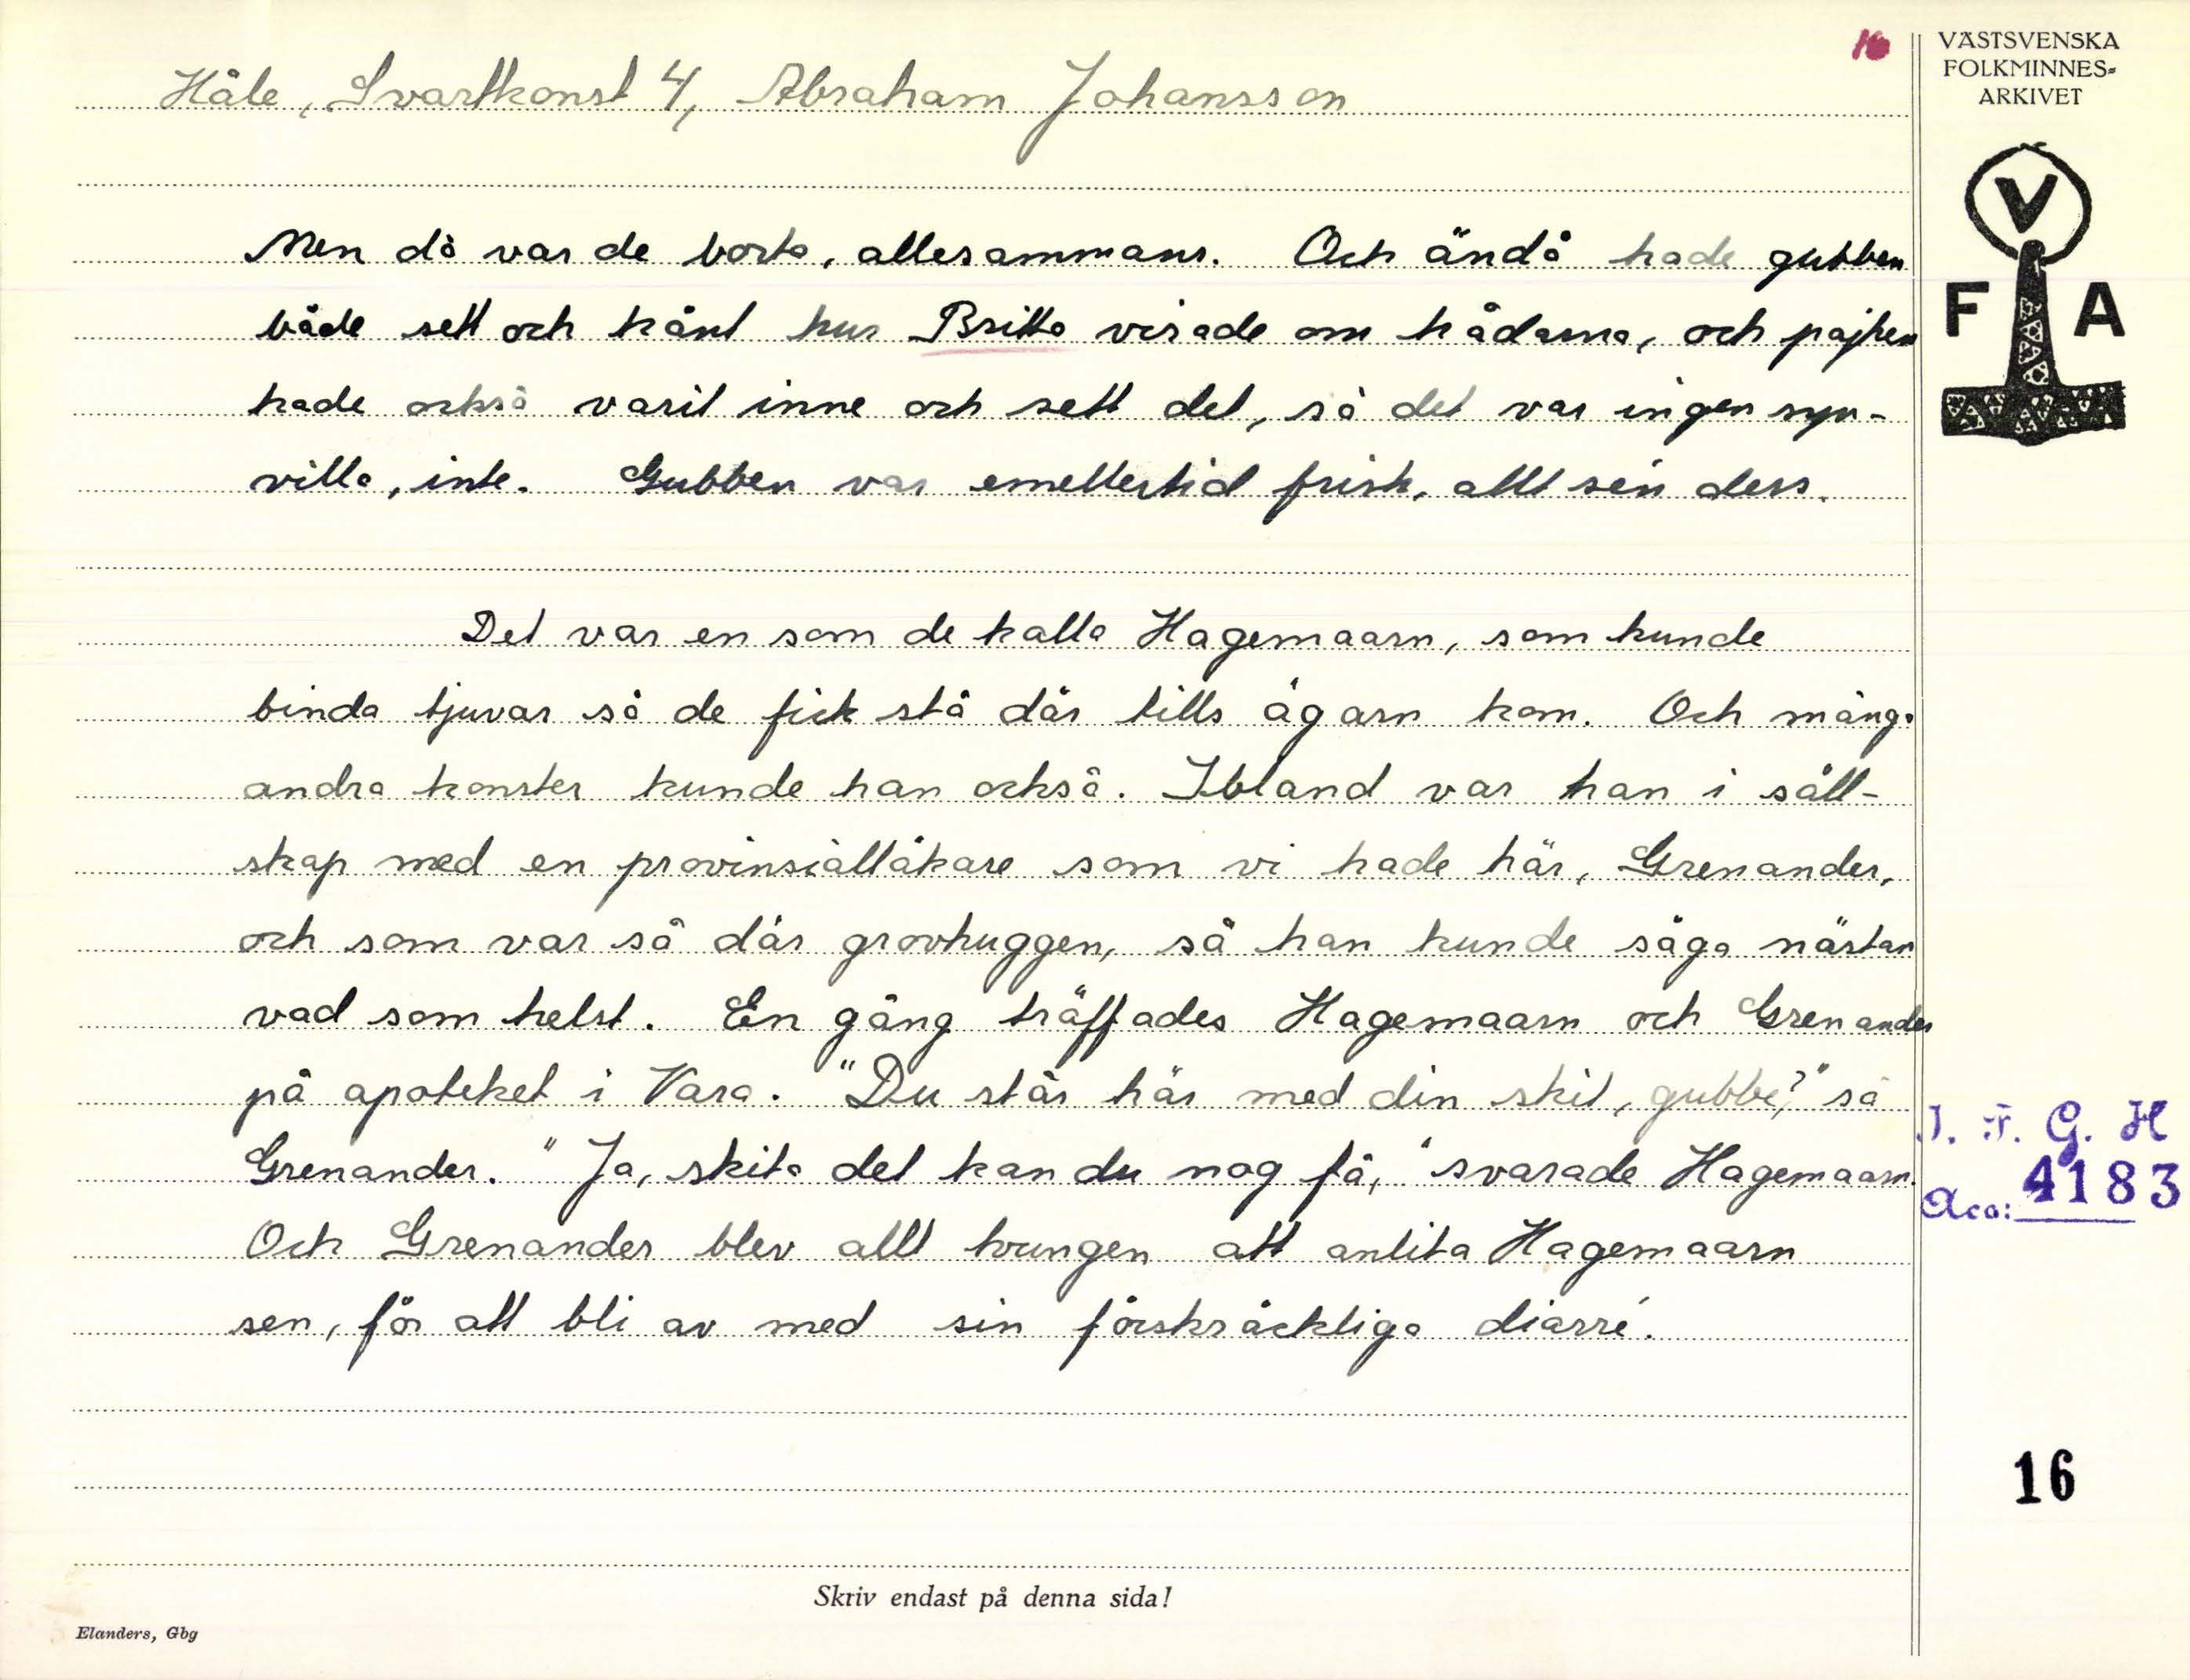 16
VÄSTSVENSKA
FOLKMINNES-
ARKIVET
Håle, Svartkonst 4, Abraham Johansson
V
F A
Men då var de borta, allesammans. Och ändå hade gubben
både sett och känt hur Britta visade om kådarna, och pajken
hade också varit inne och sett det, så det var ingen syn-
villa, inte. Gubben var emellertid frisk, allt sen dess.
Det var en som de kalla Hagemaarn, som kunde
binda tjuvar så de fick stå där tills ägarn kom. Och många
andra konster kunde han också. Ibland var han i säll-
skap med en provinsialläkare som vi hade här, Grenander,
och som var så där grovhuggen, så han kunde säga nästan
vad som helst. En gång träffades Hagemaarn och Grenander
på apoteket i Vara. "Du står här med din skit, gubbe?" sa
Grenander. "Ja, skita det kan du nog få," svarade Hagemaarn.
Och Grenander blev allt tvungen att anlita Hagemaarn
sen, för att bli av med sin förskräckliga diarré.
I. F. G. H
Acc: 4183
16
Skriv endast på denna sida!
Elanders, Gbg